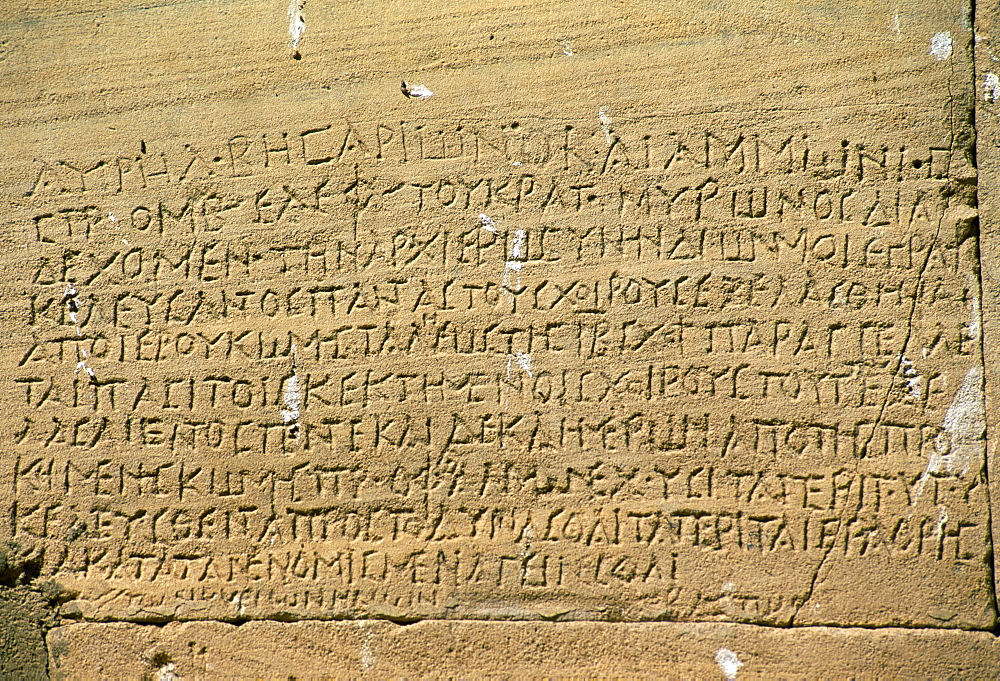 ΑΥΡΗΛ· ΒΗϹΑΡΙΩΝ Ο ΚΑΙ ΑΜΜΩΝΙ·Ϲ
ϹΤΡ· ΟΜΒ· ΕΛΕΦ· ΤΟΥ ΚΡΑΤ· ΜΥΡΩΝΟϹ ΔΙΑ
ΔΕΧΟΜΕΝ· ΤΗΝ ΑΡΧΙΕΡΩϹΥΝΗΝ ΔΙ ΩΝ ΜΟΙ ΕΓΡΑΨ
ΚΕΛΕΥϹΑΝΤΟϹ ΠΑΝΤΑϹ ΤΟΥϹ ΧΟΙΡΟΥϹ ΕΞΕΛΑϹΘΗΝΑΙ
ΑΠΟ ΙΕΡΟΥ ΚΩΜΗϹ ΤΑΛΜΕΩϹ ΤΗϹ ΙΒ ϹΧ· ΠΑΡΑΓΓΕΛΛΕ
ΤΑΙ ΠΑϹΙ ΤΟΙϹ ΚΕΚΤΗΜΕΝΟΙϹ ΧΟΙΡΟΥϹ ΤΟΥΤ· ΕΞΕ
ΛΑϹΑΙ ΕΝΤΟϹ ΠΕΝΤΕΚΑΙΔΕΚΑ ΗΜΕΡΩΝ ΑΠΟ ΤΗϹ ΠΡΟ
ΚΙΜΕΝΗϹ ΚΩΜΗϹ ΕΧΟΥϹΙ ΤΑ ΠΕΡΙ ΤΟΥΤΟΥ
ΚΕΛΕΥϹΘΕΝΤΑ ΠΡΟϹ ΤΟ ΔΥΝΑϹΘΑΙ ΤΑ ΠΕΡΙ ΤΑ ΙΕΡΑ ΘΡΗϹ
ΚΙΑ ΚΑΤΑ ΤΑ ΝΕΝΟΜΙϹΜΕΝΑ ΓΕΙΝΕϹΘΑΙ